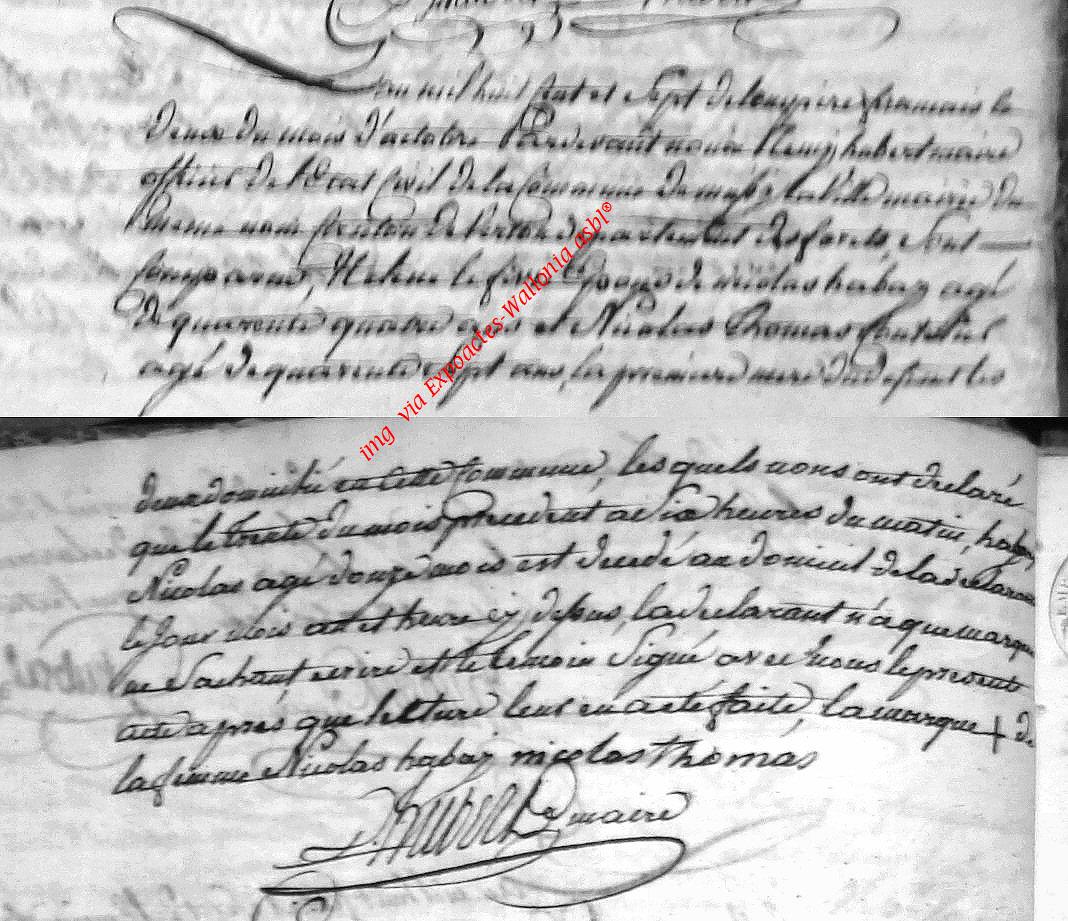 L'an mil huit cent et Sept de l'empire francais le
deux du mois d'octobre Pardevant nous Remy hubert maire
officier de l'Etat Civil de la Commune de la Ville mairie du
meme nom Canton de departement des forets, Sont
Comparus, Helene le Epouse de Nicolas habay agé
de quarente quatre ans et Nicolas Thomas
agé de quarente Sept ans, la premiere mere du defunt les
deux domicilié en cette Commune, les quels nous ont declaré
que le trente du mois precedent a dix heures du matin, habay
Nicolas agé douze mois est decedé au domicil de la declarante
le Jour mois an et heure cy dessus, la declarant n'a que marqué
ne Sachant ecrire et le temoin Signé avec nous le present
acte apres que lecture leur en a eté faite, la marque + de
la femme Nicolas habay nicolas thomas
R. hubert maire
img via Expoactes-Wallonia asbl®